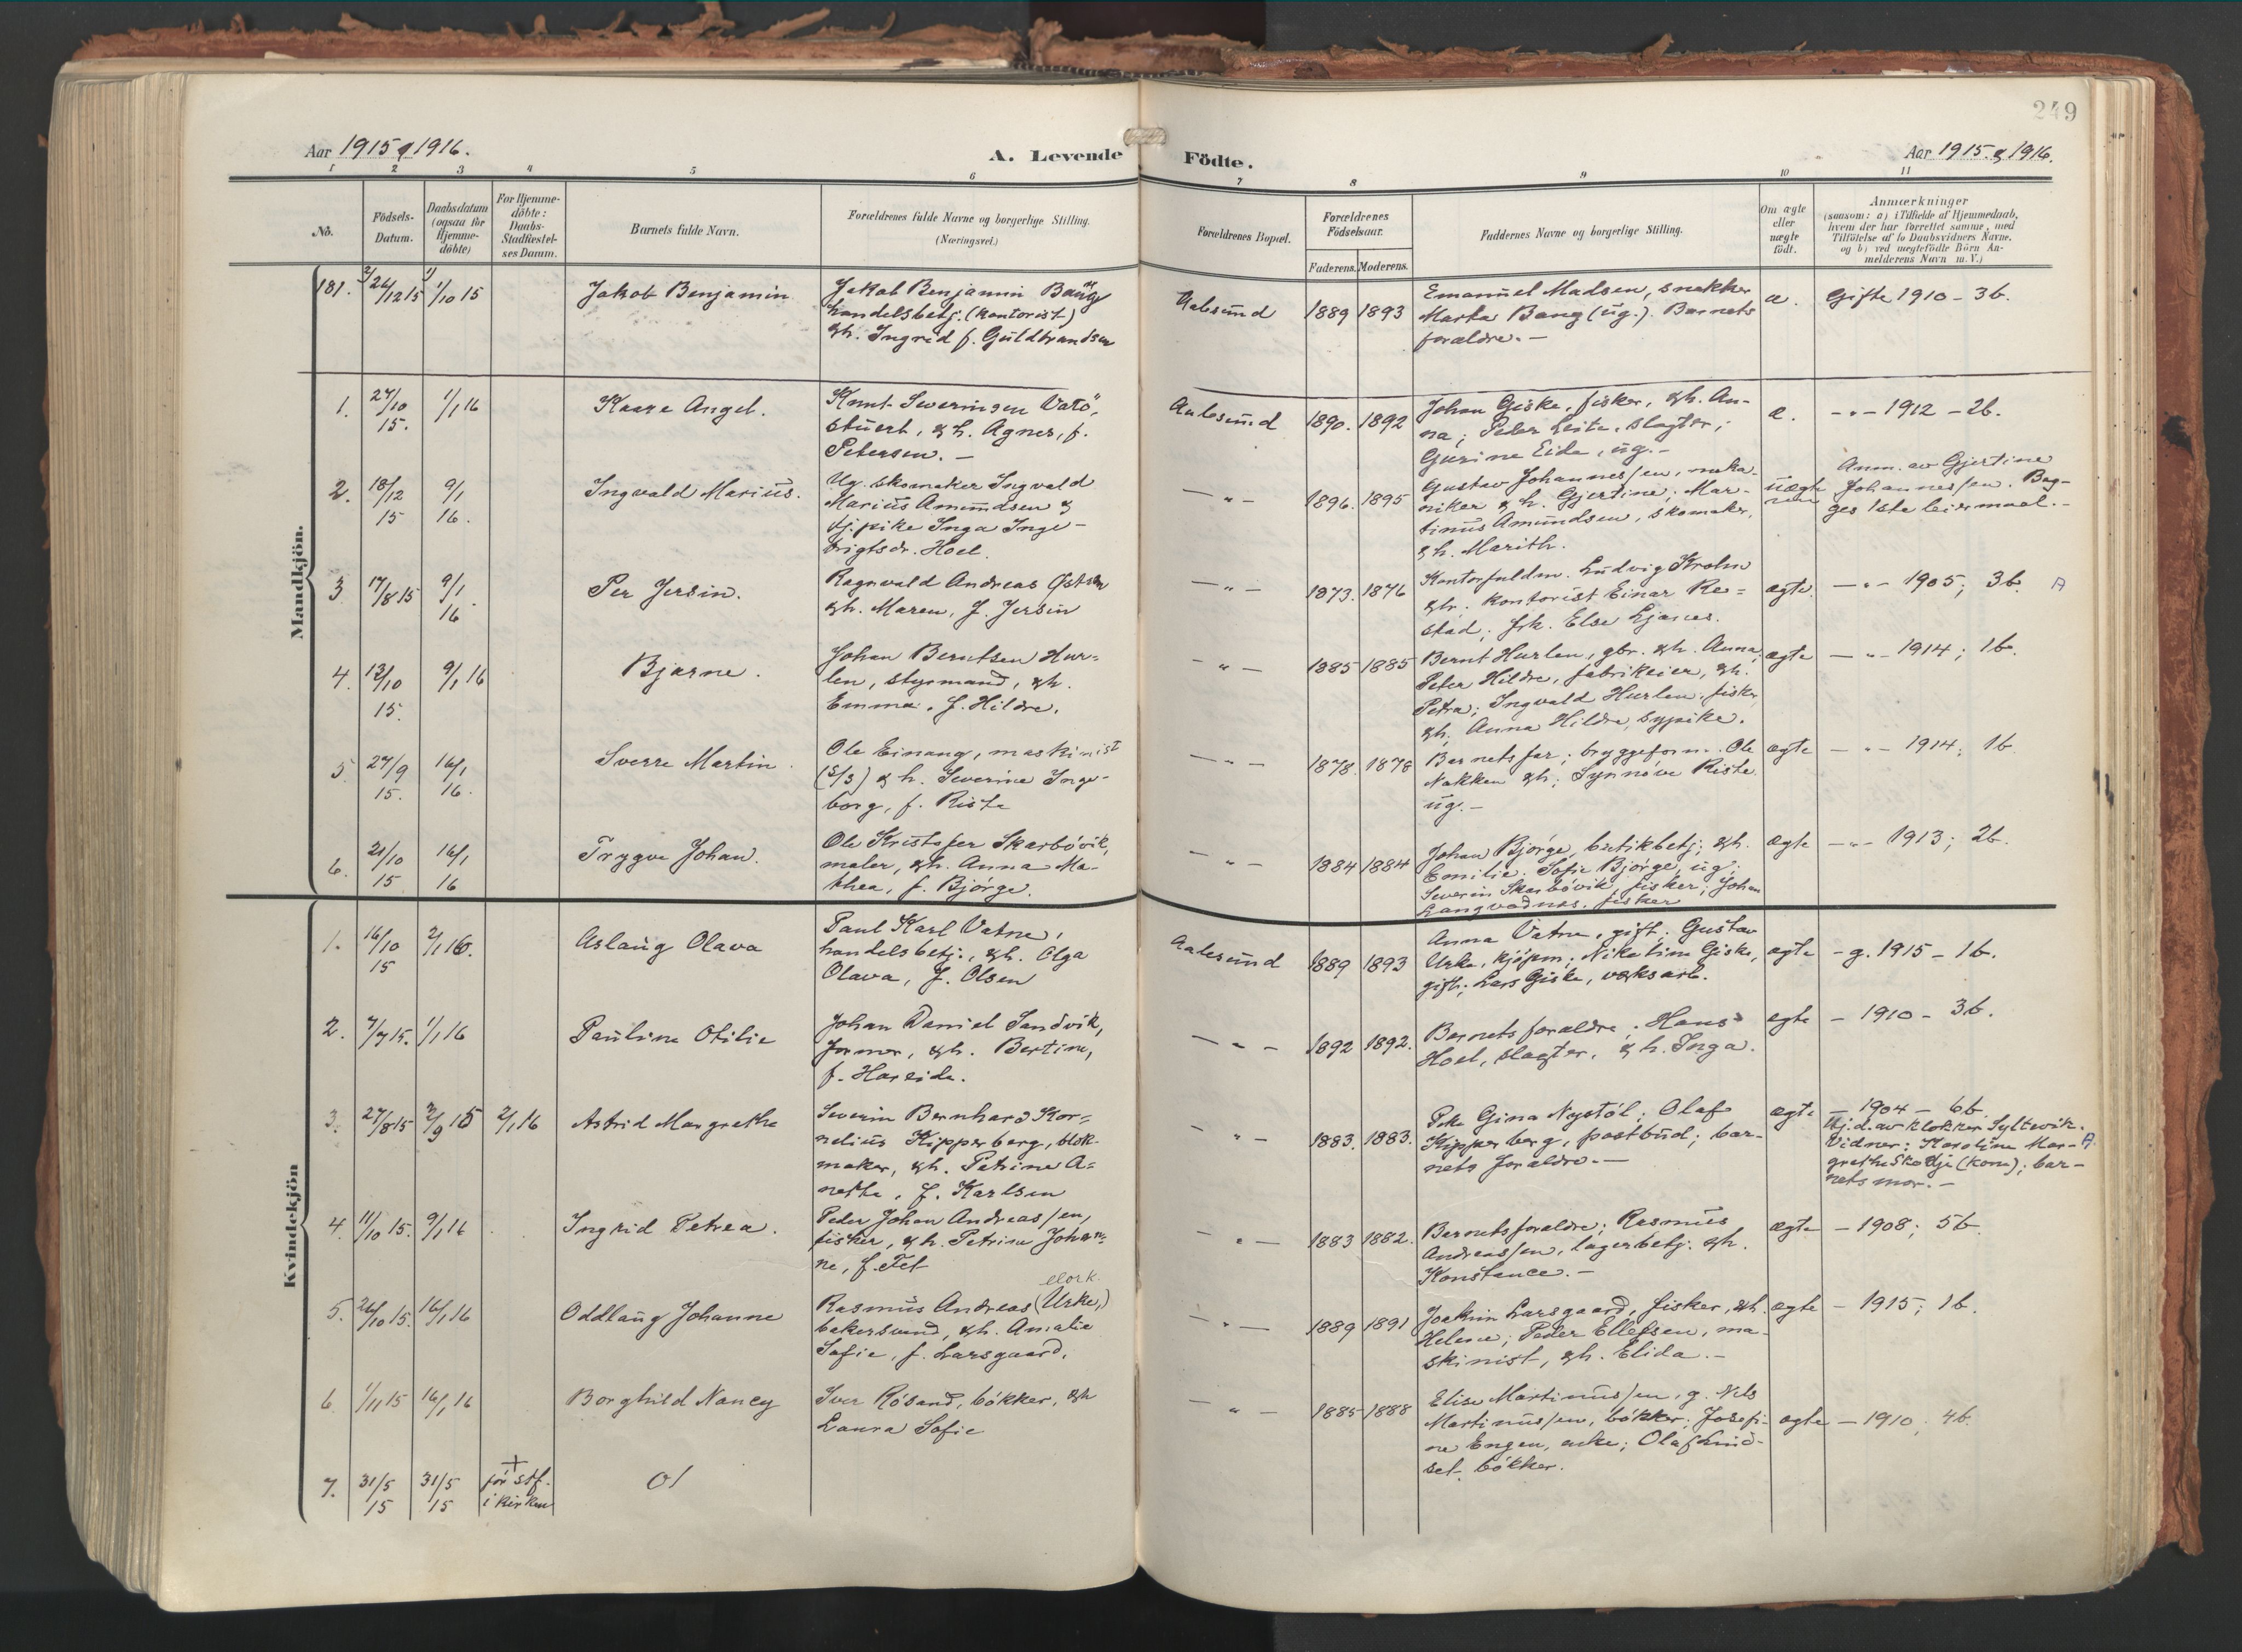 249
Aar 1915 & 1916.
A. Levende
Födte.
Aar 1915. & 1916.
1 2 3 4 5 6
7 8 9 10 11
No.
Födsels-
Datum.
Daabsdatum
(ogsaa for
Hjemme-
döbte)
For Hjemme-
döbte:
Daabs-
Stadfæstel-
ses Datum.
Barnets fulde Navn.
Forældrenes fulde Navne og borgerlige Stilling.
(Næringsvei.)
Forældrenes Bopæl.
Forældrenes
Födselsaar.
Faderens. Moderens.
Faddernes Navne og borgerlige Stilling.
Om ægte
eller
uægte
födt.
Anmærkninger
(saasom: a) i Tilfælde af Hjemmedaab,
hvem der har forrettet samme, med
Tilföielse af to Daabsvidners Navne,
og b) ved uægtefödte Börn An-
melderens Navn m. V.)
Mandkjön.
181.
26/12 15
1/10 15
Jakob Benjamin
Jakob Benjamin Bang
handelsbetj. (kontorist)
& h. Ingrid f. Guldbrandsen
Aalesund
1889
1893
Emanuel Madsen, snekker
Marta Bang (ug.). Barnets
forældre. —
æ.
Gifte 1910 - 3b.
1.
27/10
15.
1/1 16
Kaare Angel.
Knut Severinsen Vatö,
stuert, & h. Agnes, f.
Petersen. —
Aalesund
1890.
1892
Johan Giske, fisker, & h. An-
na; Peder Leite, slagter;
Gurine Eide, ug. —
æ.
— " — 1912 - 2b.
2.
18/12
15
9/1
16.
Ingvald Marius.
Ug. skomaker Ingvald
Marius Amundsen &
tj. pike Inga Inge-
brigtsdr. Hoel.
— " —
1896.
1895
Gustav Johannessen, meka-
niker & h. Gjertine; Mar-
tinus Amundsen, skomaker,
& h. Marith.
uægte
Anm. av Gjertine
Johannessen. Beg-
ges 1ste leiermaal. -
3
17/8 15
9/1
16
Per Jersin.
Ragnvald Andreas Østrem
& h. Maren, f. Jersin
— " —
1873.
1876
Kontorfuldm. Ludvig Krohn
& h. kontorist Einar Re-
stad; frk. Else Ljanes.
ægte.
— " — 1905; 3b.
A
4.
13/10
15.
9/1 16
Bjarne.
Johan Berntsen Hur-
len, styrmand, & h.
Emma, f. Hildre.
— " —
1885
1885
Bernt Hurlen, gbr. & h. Anna,
Peter Hildre, fabrikeier, & h.
Petra; Ingvald Hurlen, fisker
& h. Anna Hildre, sypike.
ægte
— " — 1914; 1b.
5.
27/9
15.
16/1
16.
Sverre Martin.
Ole Einang, maskinist
(S/S) & h. Severine Inge-
borg, f. Riste
— " —
1878.
1878
Barnets far; bryggeform. Ole
Nakken & h; Synnöve Riste
ug. —
ægte
— " — 1914; 1b.
6.
21/10
15
16/1
16
Trygve Johan.
Ole Kristofer Skarbövik,
maler, & h. Anna Ma-
thea, f. Bjørge.
— " —
1884
1884
Johan Bjørge, butikbetj; & h.
Emilie. Sofie Bjørge, ug;
Severin Skarbövik, fisker; Johan
Langvadnæs, fisker
ægte
— " — 1913; 2b.
Kvindekjön
1.
16/10
15
2/1 16.
Aslaug Olava
Paul Karl Vatne,
handelsbetj., & h. Olga
Olava, f. Olsen
Aalesund
1889
1893
Anna Vatne, gift; Gustav
Urke, kjøpm; Nikoline Giske,
gift; Lars Giske, verksarb.
ægte
- g. 1915 - 1b.
2.
7/7 15.
1/1 16
Pauline Otilie
Johan Daniel Sandvik,
former, & h. Bertine,
f. Hareide.
— " —
1892
1892.
Barnets forældre; Hans
Hoel, slagter, & h. Inga.
ægte
- 1910 - 3b.
3.
27/8 15
2/9 15
2/1 16
Astrid Margrethe
Severin Bernhard Kor-
nelius Kipperberg, blok-
maker, & h. Petrine A-
nette, f. Karlsen
— " —
1883.
1883.
Pke Gina Nystöl; Olaf
Kipperberg, postbud; bar-
nets forældre. —
ægte
— 1904 - 6b.
Hj.d. av klokker Syltevik.
Vidner: Karoline Mar-
grethe Skodje (kone); bar-
nets mor. —
A
4.
11/10 15.
9/1 16
Ingrid Petrea.
Peder Johan Andreassen,
fisker, & h. Petrine Johan-
ne, f. Fet
— " —
1883
1882.
Barnets forældre; Rasmus
Andreassen, lagerbetj. & h.
Konstance. —
ægte
- 1908; 5b
5.
26/10 15.
16/1 16
Oddlaug Johanne
Rasmus Andreas (Urke,)
bakersvend, & h. Amalie
Sofie, f. Larsgaard.
— " —
1889
1891
Joakim Larsgaard, fisker, & h.
Helene; Peder Ellefsen, ma-
skinist, & h. Elida. —
ægte
- 1915; 1b.
6
1/11 15
16/1 16
Borghild Nancy
Iver Rösand, bökker, & h
Laura Sofie
— " —
1885
1888
Elise Martinussen, g. Nils
Martinussen, bökker; Josefi-
ne Engen, enke; Olaf Lind-
set, bökker.
ægte
- 1910; 4b.
7.
31/5
15
31/5
15
+
for stf.
i kirken